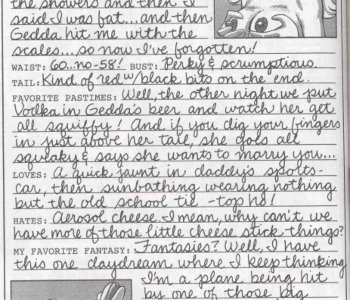 the showers and then I
said I was fat...and then
Gedda hit me with the
scales...so now I've forgotten!
WAIST: 60..no-58! BUST: Perky & scrumptious.
TAIL: Kind of red w/black bits on the end.
FAVORITE PASTIMES: Well, the other night we put
Vodka in Gedda's beer and watch her get
all squiffy! And if you dig your fingers
in just above her tail, she goes all
squeaky & says she wants to marry you...
LOVES: A quick jaunt in daddy's sports-
car, then sunbathing wearing nothing
but the old school tie - top ho!
HATES: Aerosol cheese. I mean, why can't we
have more of those little cheese stick-things?
MY FAVORITE FANTASY: Fantasies? Well, I have
this one daydream where I keep thinking
I'm a plane being hit
by one of those big